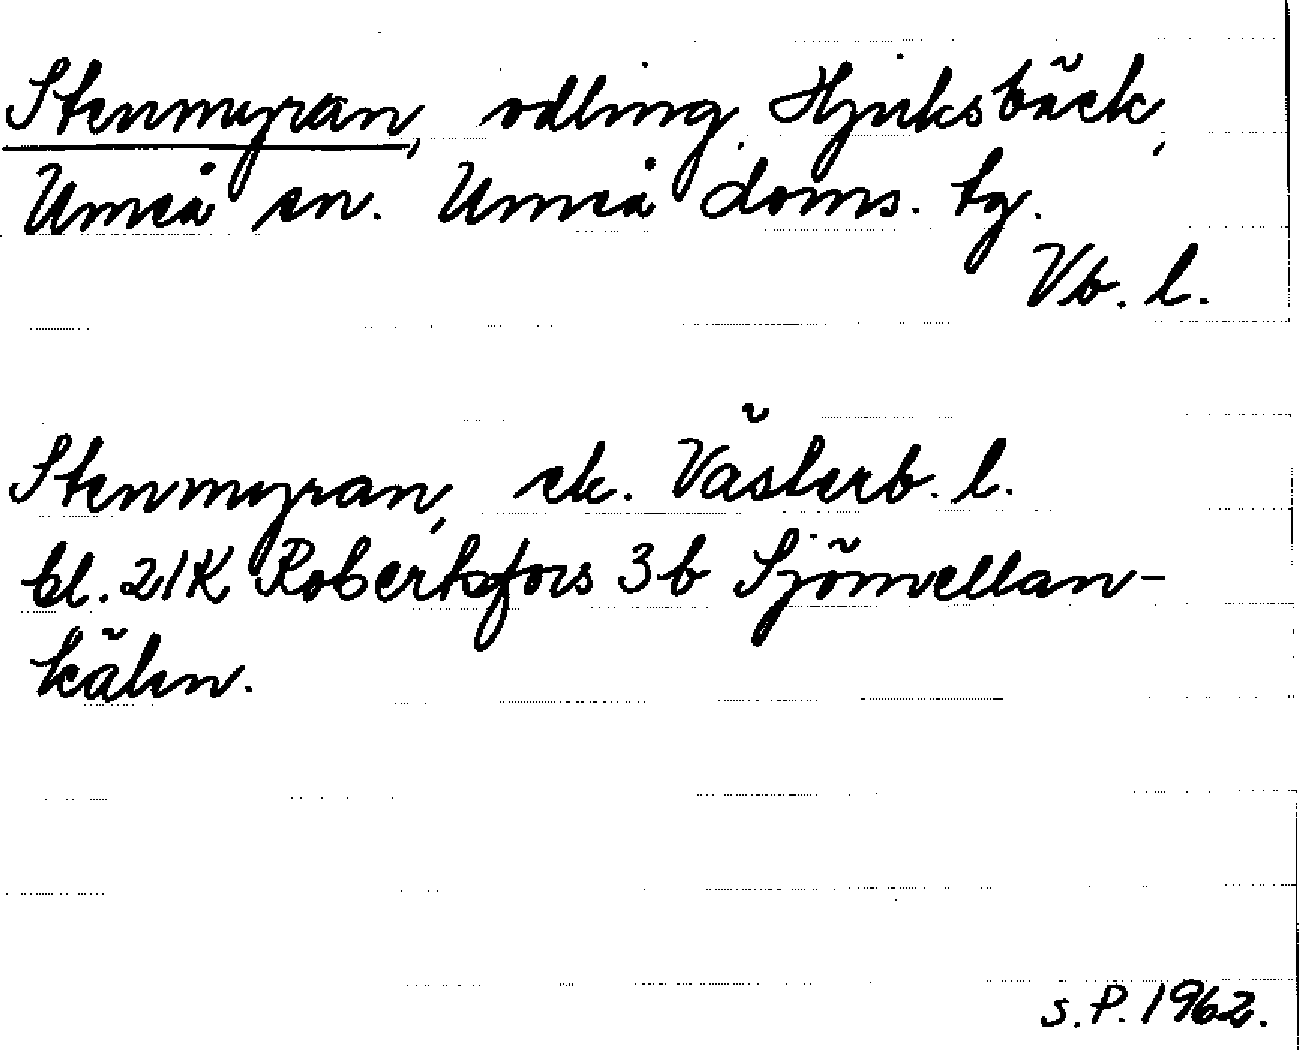 Stenmyran, odling, Hjuksbäck,
Umeå sn. Umeå doms. tg.
Vb. l.
Stenmyran, ek. Västerb. l.
bl. 21K Robertsfors 3b Sjömellan-
kälen.
S.P. 1962.